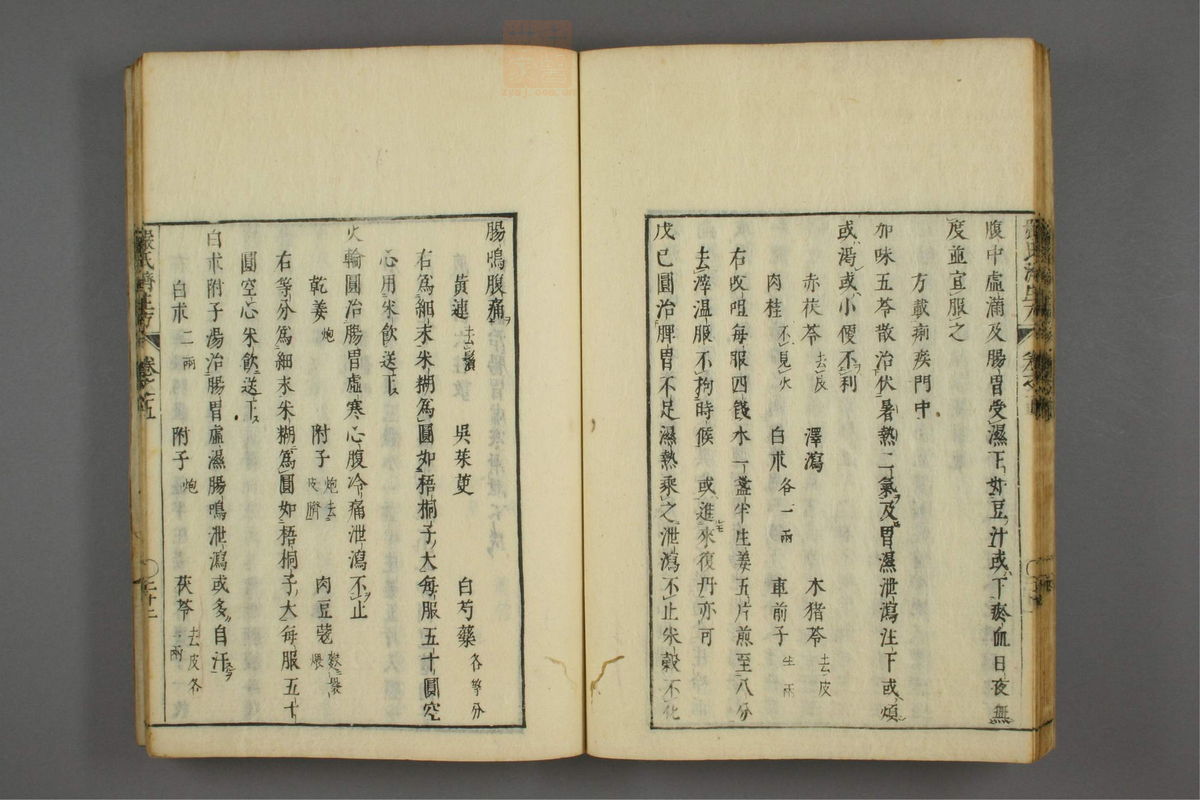 腹中虛滿及腸胃受濕下如豆汁或下瘀血日夜無
度並宜服之
方載痢疾門中
加味五苓散治伏暑熱二氣及胃濕泄瀉注下或煩
或渴或小便不利
赤茯苓去皮 澤瀉 木猪苓去皮
肉桂不見火 白朮各一兩 車前子半兩
右㕮咀每服四錢水一盞半生姜五片煎至八分
去滓温服不拘時候或進來復丹亦可
戊己圓治脾胃不足濕熱乘之泄瀉不止米穀不化
腸鳴腹痛
黃連去鬚 吳茱萸 白芍藥各等分
右爲細末米糊爲圓如梧桐子大每服五十圓空
心用米飲送下
火輪圓治腸胃虛寒心腹冷痛泄瀉不止
乾姜炮 附子炮去皮臍 肉豆蔻麪裹煨
右等分爲細末米糊爲圓如梧桐子大每服五十
圓空心米飲送下
白朮附子湯治腸胃虛濕腸鳴泄瀉或多自汗
白朮二兩 附子炮 茯苓去皮各一兩
嚴氏濟生方 卷之五 二十二